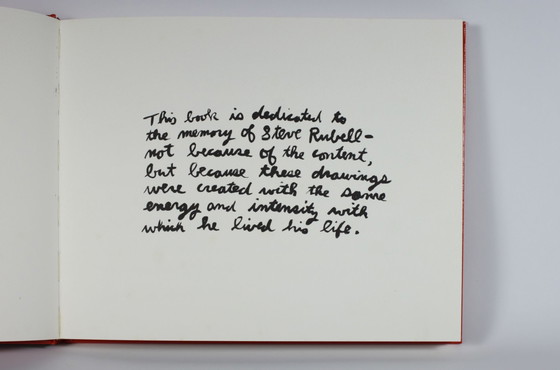 This book is dedicated to
the memory of Steve Rubell-
not because of the content,
but because these drawings
were created with the same
energy and intensity with
which he lived his life.